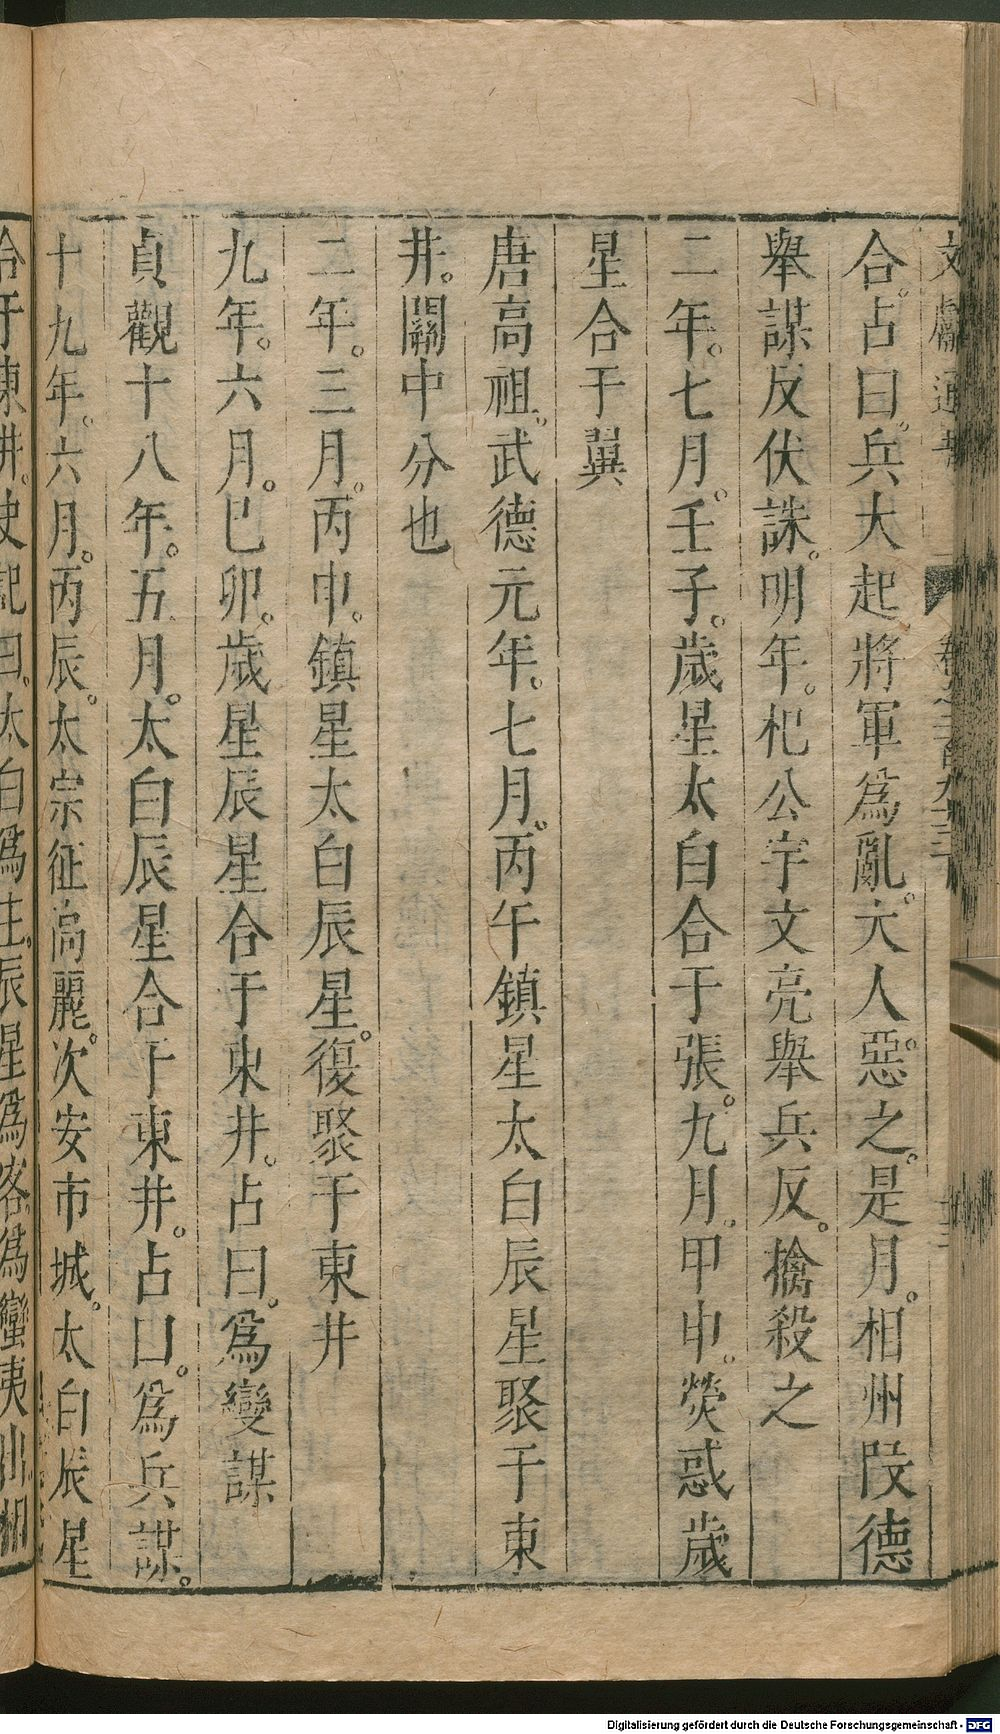 文獻通考 卷之二百九十三
合。占曰。兵大起將軍爲亂。大人惡之。是月。相州段德
舉謀反伏誅。明年。杞公宇文亮舉兵反。擒殺之
二年。七月。壬子。歲星太白合于張。九月。甲申。熒惑歲
星合于翼
唐高祖。武德元年。七月。丙午鎮星太白辰星聚于東
井。關中分也
二年。三月。丙申。鎮星太白辰星。復聚于東井
九年。六月。巳卯。歲星辰星合于東井。占曰。爲變謀
貞觀十八年。五月。太白辰星合于東井。占曰。爲兵謀。
十九年。六月。丙辰。太宗征高麗。次安市城。太白辰星
合于東井。史記曰。太白爲主。辰星爲客。爲蠻夷出相
Digitalisierung gefördert durch die Deutsche Forschungsgemeinschaft - DFG